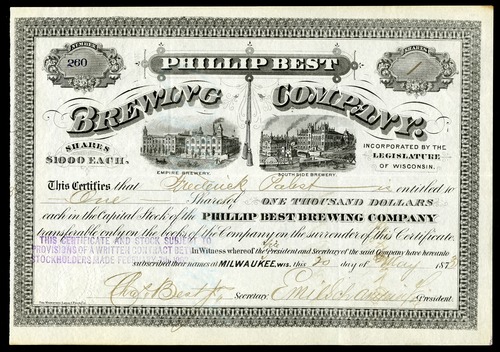 NUMBER
260
SHARES
1
PHILLIP BEST
BREWING COMPANY.
SHARES
$1000 EACH.
EMPIRE BREWERY.
SOUTH SIDE BREWERY.
INCORPORATED BY THE
LEGISLATURE
OF WISCONSIN.
This Certifies that Frederick Pabst is entitled to
One Shares of ONE THOUSAND DOLLARS
each in the Capital Stock of the PHILLIP BEST BREWING COMPANY
transferable only on the books of the Company on the surrender of this Certificate.
THIS CERTIFICATE AND STOCK SUBJECT
PROVISIONS OF A WRITTEN CONTRACT BET
STOCKHOLDERS, MADE
In Witness whereof the President and Secretary of the said Company have hereunto
subscribed their names at MILWAUKEE, WIS. this 20 day of May 187
Chas Best Jr. Secretary Emil Schandein President.